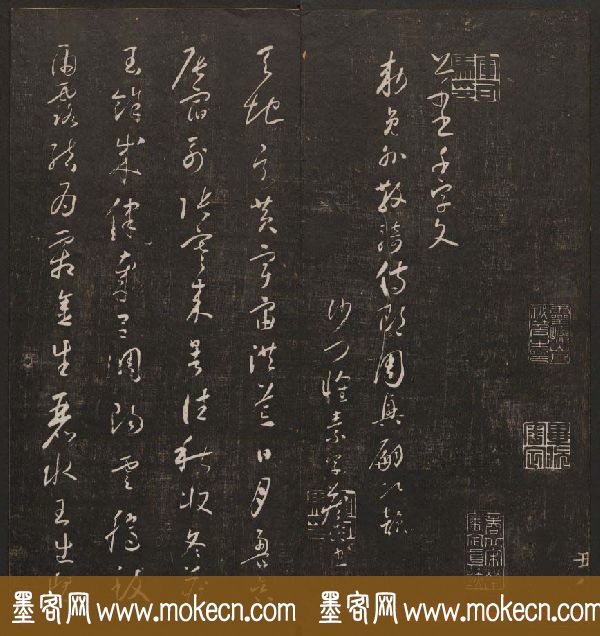 書千字文
敕員外散騎侍郎周興嗣次韻
沙門懷素字藏真書
天地玄黃宇宙洪荒日月盈昃
辰宿列張寒來暑往秋收冬藏
閏餘成律歲呂調陽雲騰致
雨露結為霜金生麗水玉出崑
丑
墨客网 www.mokecn.com 墨客网 www.mokecn.com